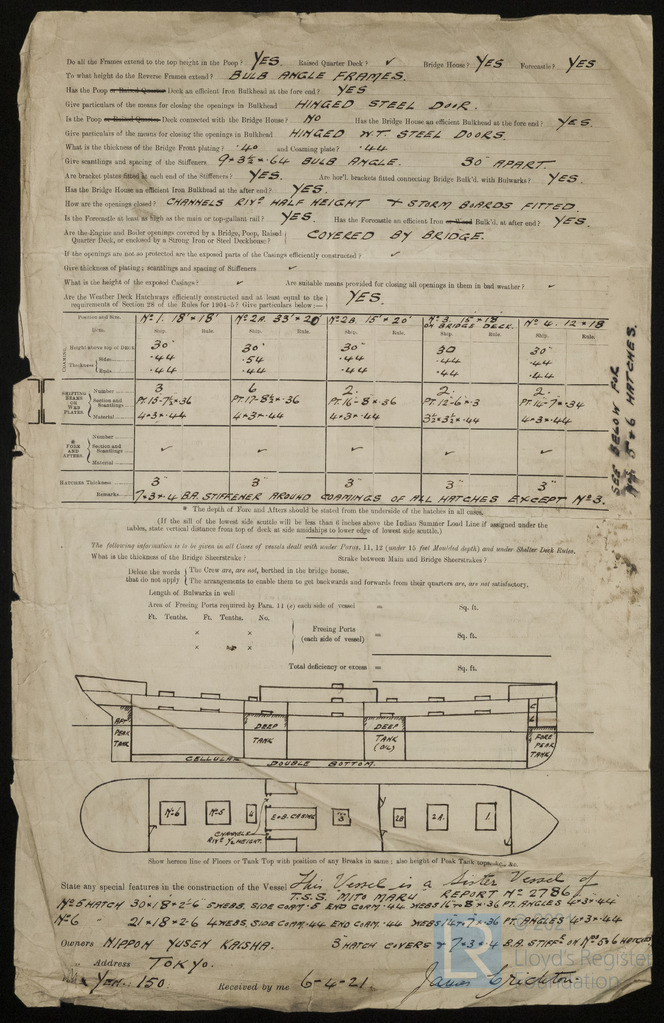 Do all the Frames extend to the top height in the Poop? YES. Raised Quarter Deck? ✓ Bridge House? YES Forecastle? YES
To what height do the Reverse Frames extend? BULB ANGLE FRAMES.
Has the Poop or Raised Quarter Deck an efficient Iron Bulkhead at the fore end? YES
Give particulars of the means for closing the openings in Bulkhead HINGED STEEL DOOR.
Is the Poop or Raised Quarter Deck connected with the Bridge House? NO Has the Bridge House an efficient Bulkhead at the fore end? YES.
Give particulars of the means for closing the openings in Bulkhead HINGED W.T. STEEL DOORS.
What is the thickness of the Bridge Front plating? .40 and Coaming plate? .44
Give scantlings and spacing of the Stiffeners. 9 × 3½ × .64 BULB ANGLE. 30" APART.
Are bracket plates fitted at each end of the Stiffeners? YES. Are hor'l. brackets fitted connecting Bridge Bulk'd. with Bulwarks? YES.
Has the Bridge House an efficient Iron Bulkhead at the after end? YES.
How are the openings closed? CHANNELS RIVD HALF HEIGHT & STORM BOARDS FITTED.
Is the Forecastle at least as high as the main or top-gallant rail? YES. Has the Forecastle an efficient Iron or Wood Bulk'd. at after end? YES.
Are the Engine and Boiler openings covered by a Bridge, Poop, Raised Quarter Deck, or enclosed by a Strong Iron or Steel Deckhouse? COVERED BY BRIDGE.
If the openings are not so protected are the exposed parts of the Casings efficiently constructed? ✓
Give thickness of plating; scantlings and spacing of Stiffeners ✓
What is the height of the exposed Casings? ✓ Are suitable means provided for closing all openings in them in bad weather? ✓
Are the Weather Deck Hatchways efficiently constructed and at least equal to the requirements of Section 28 of the Rules for 1904-5? Give particulars below:— YES.
Position and Size. No 1. 18' × 18' No 2A. 33' × 20' No 2B. 15' × 20' No 3. 15' × 18' ON BRIDGE DECK. No 4. 12 × 18
Item. Ship. Rule. Ship. Rule. Ship. Rule. Ship. Rule. Ship. Rule.
COAMING Height above top of DECK 30" 30" 30" 30 30"
Thickness Sides .44 .54 .44 .44 .44
Ends .44 .44 .44 .44 .44
SHIFTING BEAMS OR WEB PLATES. Number 3 6 2. 2. 2.
Section and Scantlings PT. 15-7½ × .36 PT. 17-8½ × .36 PT. 16-8 × .36 PT. 12-6 × .3 PT. 14-7 × .34
Material 4 × 3 × .44 4 × 3 × .44 4 × 3 × .44 3½ × 3½ × .44 4 × 3 × .44
* FORE AND AFTERS. Number
Section and Scantlings ✓ ✓ ✓ ✓ ✓
Material
HATCHES Thickness 3" 3" 3" 3" 3"
Remarks 7 × 3 × 4 B.A. STIFFENER AROUND COAMINGS OF ALL HATCHES EXCEPT No 3.
SEE BELOW FOR Nos 5 & 6 HATCHES.
* The depth of Fore and Afters should be stated from the underside of the hatches in all cases.
(If the sill of the lowest side scuttle will be less than 6 inches above the Indian Summer Load Line if assigned under the
tables, state vertical distance from top of deck at side amidships to lower edge of lowest side scuttle.)
The following information is to be given in all Cases of vessels dealt with under Paras. 11, 12 (under 15 feet Moulded depth) and under Shelter Deck Rules.
What is the thickness of the Bridge Sheerstrake? Strake between Main and Bridge Sheerstrakes?
Delete the words that do not apply The Crew are, are not, berthed in the bridge house.
The arrangements to enable them to get backwards and forwards from their quarters are, are not satisfactory.
Length of Bulwarks in well
Area of Freeing Ports required by Para. 11 (e) each side of vessel = Sq. ft.
Ft. Tenths. Ft. Tenths. No.
× × Freeing Ports (each side of vessel) = Sq. ft.
× ×
Total deficiency or excess = Sq. ft.
AFT PEAK TANK
DEEP TANK
DEEP TANK (OIL)
FORE PEAK TANK
CELLULAR DOUBLE BOTTOM.
No 6 No 5 4 E & B. CASING No 3 2B 2A. 1.
CHANNELS RIVD ½ HEIGHT.
Show hereon line of Floors or Tank Top with position of any Breaks in same; also height of Peak Tank tops, &c., &c.
State any special features in the construction of the Vessel This Vessel is a Sister Vessel of
T.S.S. MITO MARU REPORT No 2786
No 5 HATCH 30 × 18 × 2'-6" 5 WEBS. SIDE COAM .5 END COAM .44 WEBS 16 × 8 × .36 PT. ANGLES 4 × 3 × .44
No 6 " 21 × 18 × 2-6 4 WEBS, SIDE COAM .44 END COAM .44 WEBS 14 × 7 × .36 PT. ANGLES 4 × 3 × .44
Owners NIPPON YUSEN KAISHA. 3" HATCH COVERS & 7 × 3 × .4 B.A. STIFFS ON Nos 5 & 6 HATCHES
" Address TOKYO.
YEN. 150. Received by me 6-4-21. James Crichton.
© 2021
LR
Lloyd's Register
Foundation